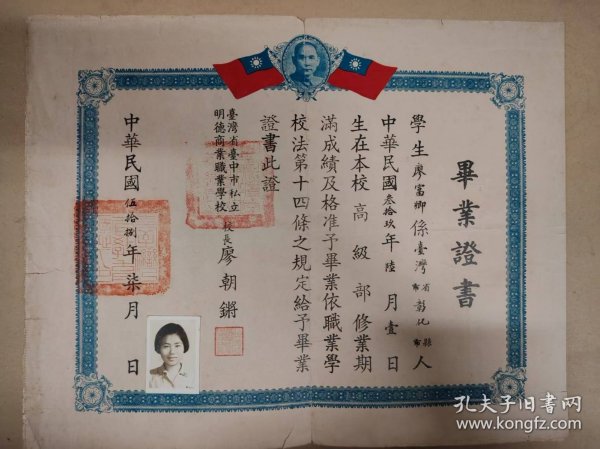 畢業證書
學生廖富卿係臺灣省市彰化縣市人
中華民國叁拾玖年陸月壹日
生在本校高級部修業期
滿成績及格准予畢業依職業學
校法第十四條之規定給予畢業
證書此證
臺灣省臺中市私立
明德商業職業學校
校長廖朝鏘
中華民國伍拾捌年柒月 日
孔夫子旧书网
www.kongfz.com